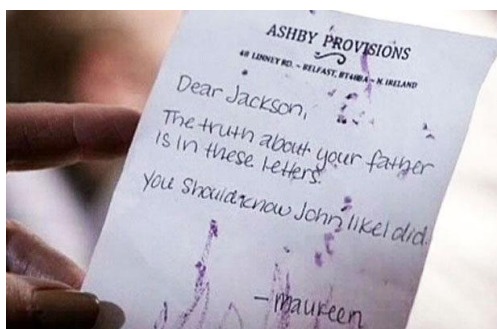 ASHBY PROVISIONS
48 LINNEY RD. ~ BELFAST, BT48BA ~ N. IRELAND
Dear Jackson,
The truth about your father
is in these letters.
You Should know John like I did.
- maureen